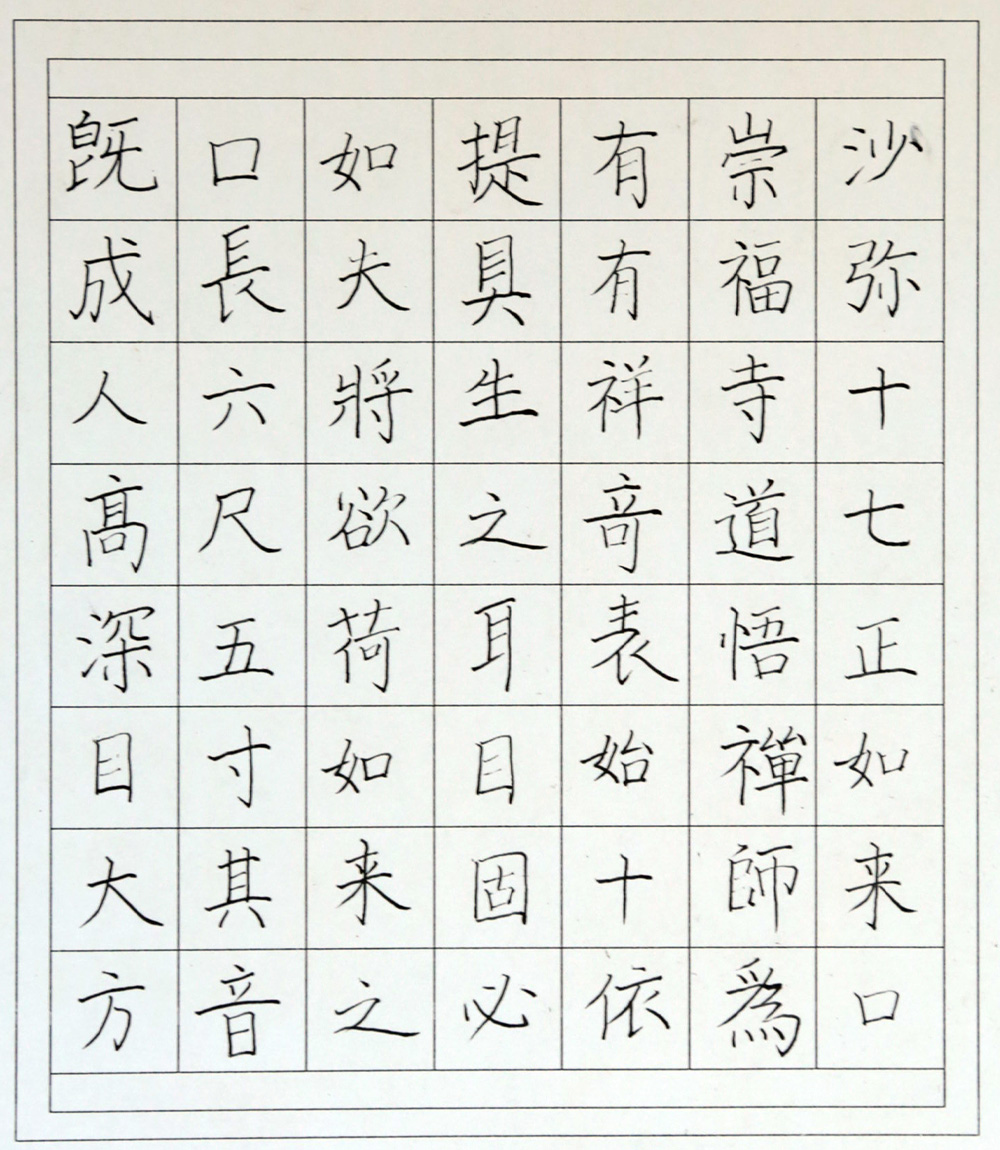 沙弥十七正如来口
崇福寺道悟禪師爲
有有祥竒表始十依
提具生之耳目固必
如夫將欲荷如来之
口長六尺五寸其音
既成人高深目大方